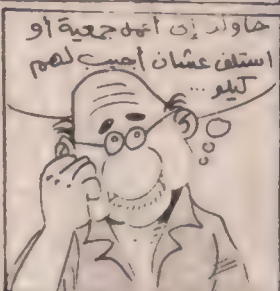 حاولت إنى أعمل جمعية أو
استلف عشان أجيب لهم
كيلو ...